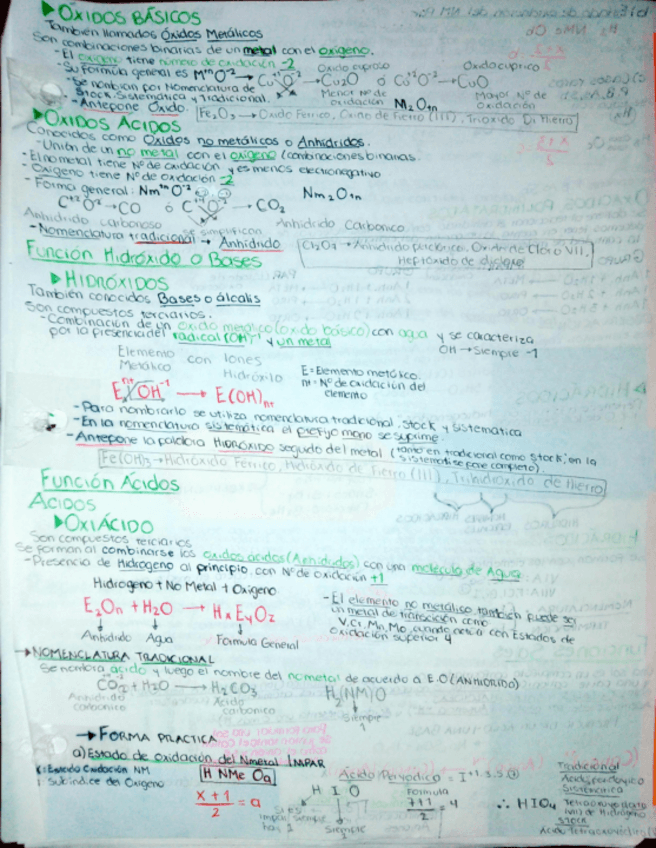 ÓXIDOS BÁSICOS
También llamados Óxidos Metálicos
Son combinaciones binarias de un metal con el oxígeno.
- El oxígeno tiene número de oxidación -2
- Su fórmula general es M⁺ⁿO⁻² → Cu⁺¹O⁻² → Cu2O ó Cu⁺²O⁻² → CuO
Óxido cuproso Óxido cúprico
- Se nombran por Nomenclatura de Stock, Sistemática y tradicional.
Menor Nº de oxidación M₂O₊n Mayor Nº de oxidación
- Antepone Óxido.
Fe₂O₃ → Óxido Férrico, Óxido de Fierro (III), Trióxido Di Hierro
ÓXIDOS ÁCIDOS
Conocidos como Óxidos no metálicos o Anhídridos.
- Unión de un no metal con el oxígeno (combinaciones binarias.
- El no metal tiene Nº de oxidación y es menos electronegativo
- Oxígeno tiene Nº de oxidación -2
- Forma general: Nm⁺ⁿ O⁻² Nm₂O₊n
C⁺² O⁻² → CO ó C⁺⁴O⁻² → CO₂
Anhídrido carbonoso se simplifican Anhídrido Carbónico
- Nomenclatura tradicional → Anhídrido
Cl₂O₇ → Anhídrido perclórico, Óxido de Cloro VII,
Heptóxido de dicloro
Función Hidróxido o Bases
HIDRÓXIDOS
También conocidos Bases o álcalis
Son compuestos terciarios.
- Combinación de un óxido metálico (óxido básico) con agua y se caracteriza
por la presencia del radical (OH)⁻¹ y un metal
OH → Siempre -1
Elemento Metálico con Iones Hidróxilo
E = Elemento metálico.
n+ = Nº de oxidación del elemento
Eⁿ⁺ OH⁻¹ → E(OH)n+
- Para nombrarlo se utiliza nomenclatura tradicional, stock y sistemática
- En la nomenclatura sistemática el prefijo mono se suprime.
- Antepone la palabra HIDRÓXIDO seguido del metal (tanto en tradicional como Stock, en la
sistemática se pone completo).
Fe(OH)₃ → Hidróxido Férrico, Hidróxido de Fierro (III), Trihidróxido de Hierro
Función Ácidos
ÁCIDOS
OXIÁCIDO
Son compuestos terciarios
Se forman al combinarse los óxidos ácidos (Anhídridos) con una molécula de Agua.
- Presencia de Hidrógeno al principio, con Nº de oxidación +1
Hidrógeno + No Metal + Oxígeno
E₂On + H₂O → HₓEᵧOz
Anhídrido Agua Fórmula General
- El elemento no metálico también puede ser
un metal de transición como
V, Cr, Mn, Mo, cuando actúa con Estados de
oxidación superior 4
→ NOMENCLATURA TRADICIONAL
Se nombra ácido y luego el nombre del no metal de acuerdo a E.O (ANHÍDRIDO)
CO₂ + H₂O → H₂CO₃ H₂(NM)O
Anhídrido carbónico Ácido carbónico Siempre
→ FORMA PRÁCTICA
a) Estado de oxidación del Nmetal IMPAR
X: Estado Oxidación NM
: Subíndice del Oxígeno
H NMe Oa
x + 1 / 2 = a
Ácido Peryódico = I⁺¹·³·⁵·⑦
H I O
Si es impar siempre hay 1
Siempre
Fórmula
7+1 / 2 = 4
∴ HIO₄
Tradicional
Ácido peryódico
Sistemática
Tetraoxoyodato (VII) de Hidrógeno
Stock